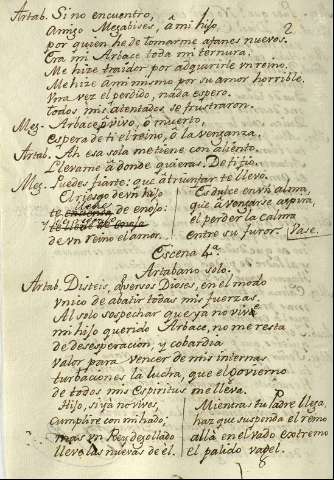 2
Artab. Si no encuentro,
Amigo Megabises, â mi hijo,
por quien he de tomarme afanes nuevos.
Era mi Arbace toda mi ternura.
Me hize traidor por adquirirle vn reino.
Me hize â mi mismo por su amor horrible.
Vna vez el perdido, nada espero.
Todos mis atentados se frustraron.
Meg. Arbace ô vivo, ô muerto,
Espera de ti el reino, ô la venganza.
Artab. Ah esa sola me tiene con aliento.
Llevame â donde quieras. De ti fio.
Meg. Puedes fiarte: que â triunfar te llevo.
El riesgo de vn hijo
te de enojo:
de vn reino el amor.
Es dulce en vn alma,
que â vengarse aspira,
el perder la calma
entre su furor. Vase.
Escena 4ª.
Artabano solo.
Artab. Disteis, adversos Dioses, en el modo
vnico de abatir todas mis fuerzas.
Al solo sospechar que ya no vive
mi hijo querido Arbace, no me resta
de desesperacion, y cobardia
valor para vencer de mis internas
turbaciones la lucha, que el govierno
de todos mis Espiritus me lleva.
Hijo, si ya no vives,
cumplire con mi hado;
mas vn Rey degollado
lleve las nuevas de el.
Mientras tu Padre llega,
haz que suspenda el remo
allà en el vado extremo
el palido vagel.